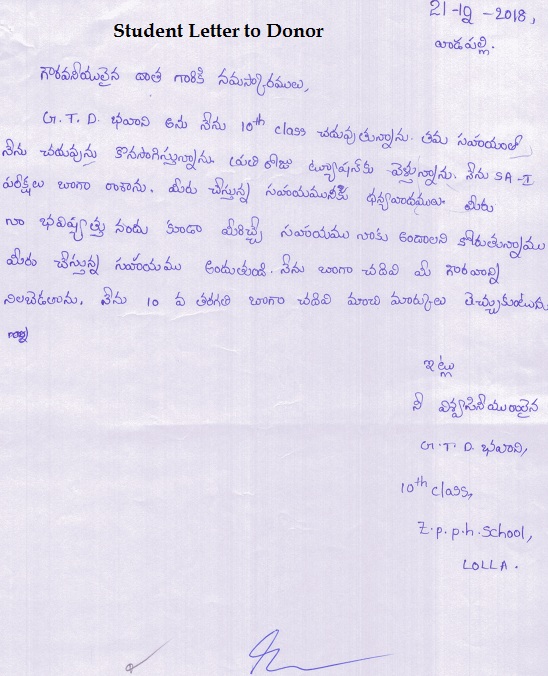 Student Letter to Donor
21-12-2018,
వాడపల్లి.
గౌరవనీయులైన దాత గారికి నమస్కారములు,
G.T.D. భవాని అను నేను 10th class చదువుతున్నాను. తమ సహాయంతో
నేను చదువును కొనసాగిస్తున్నాను. ప్రతి రోజు ట్యూషన్‌కు వెళ్తున్నాను. నేను SA-I
పరీక్షలు బాగా రాశాను. మీరు చేస్తున్న సహాయమునకు ధన్యవాదములు. మీరు
నా భవిష్యత్తు నందు కూడా మీరిచ్చే సహాయము నాకు ఉండాలని కోరుతున్నాము
మీరు చేస్తున్న సహాయము అందుతుంది. నేను బాగా చదివి మీ గౌరవాన్ని
నిలబెడతాను. నేను 10 వ తరగతి బాగా చదివి మంచి మార్కులు తెచ్చుకుంటాను
ఇట్లు
మీ విశ్వాసనీయురాలైన
G.T.D. భవాని,
10th class,
Z.p.p.h.School,
LOLLA.